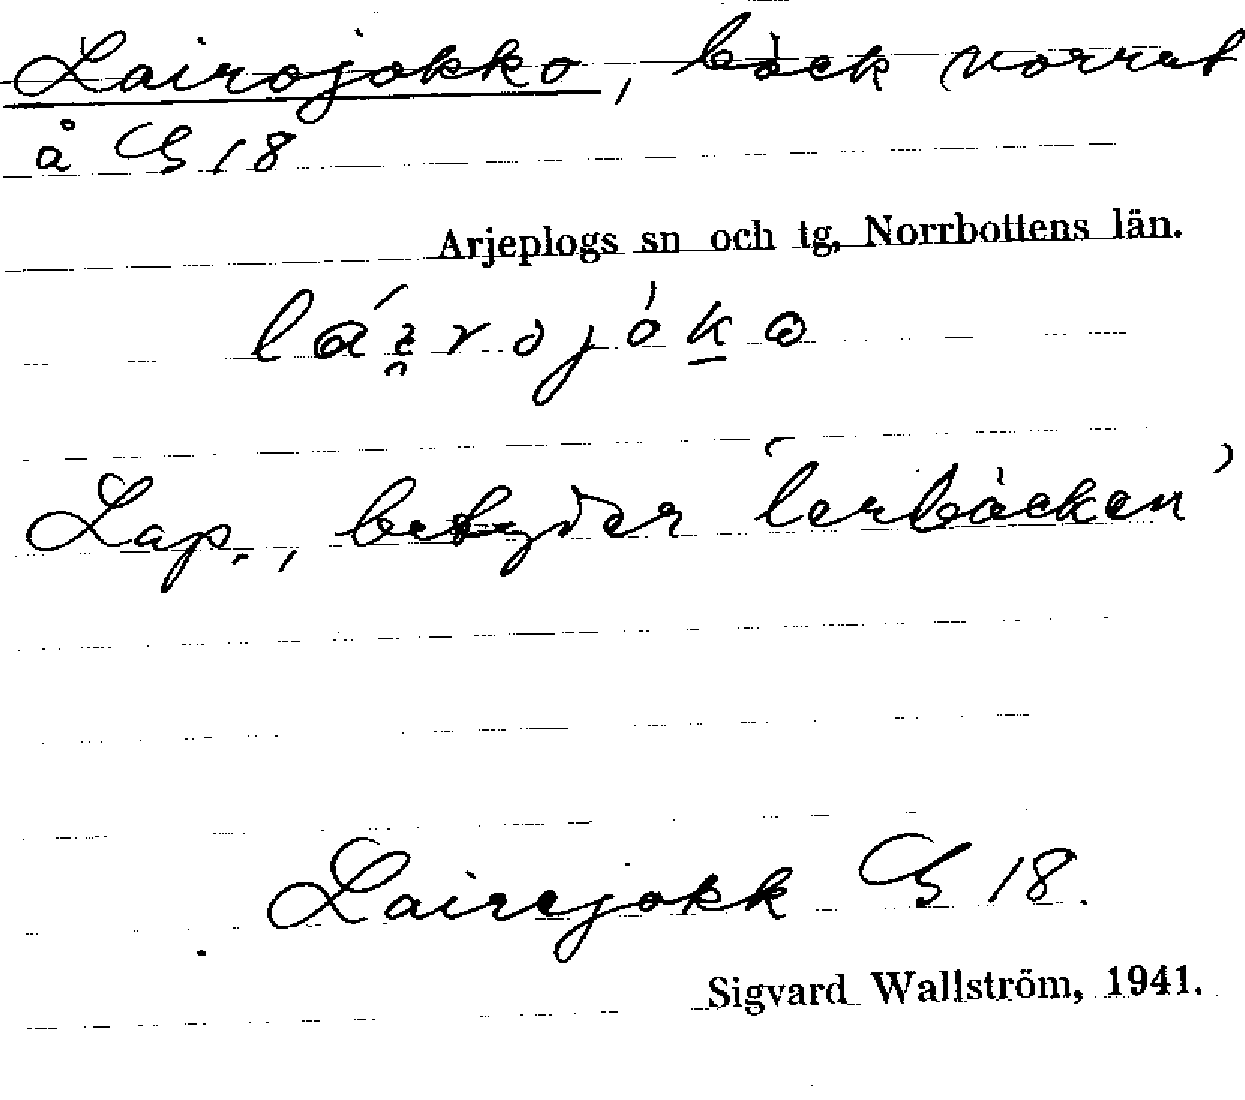 Lairojokko, bäck norrut
å G 18
Arjeplogs sn och tg, Norrbottens län.
Lap., betyder 'lerbäcken'
Lairejokk G 18.
Sigvard Wallström, 1941.